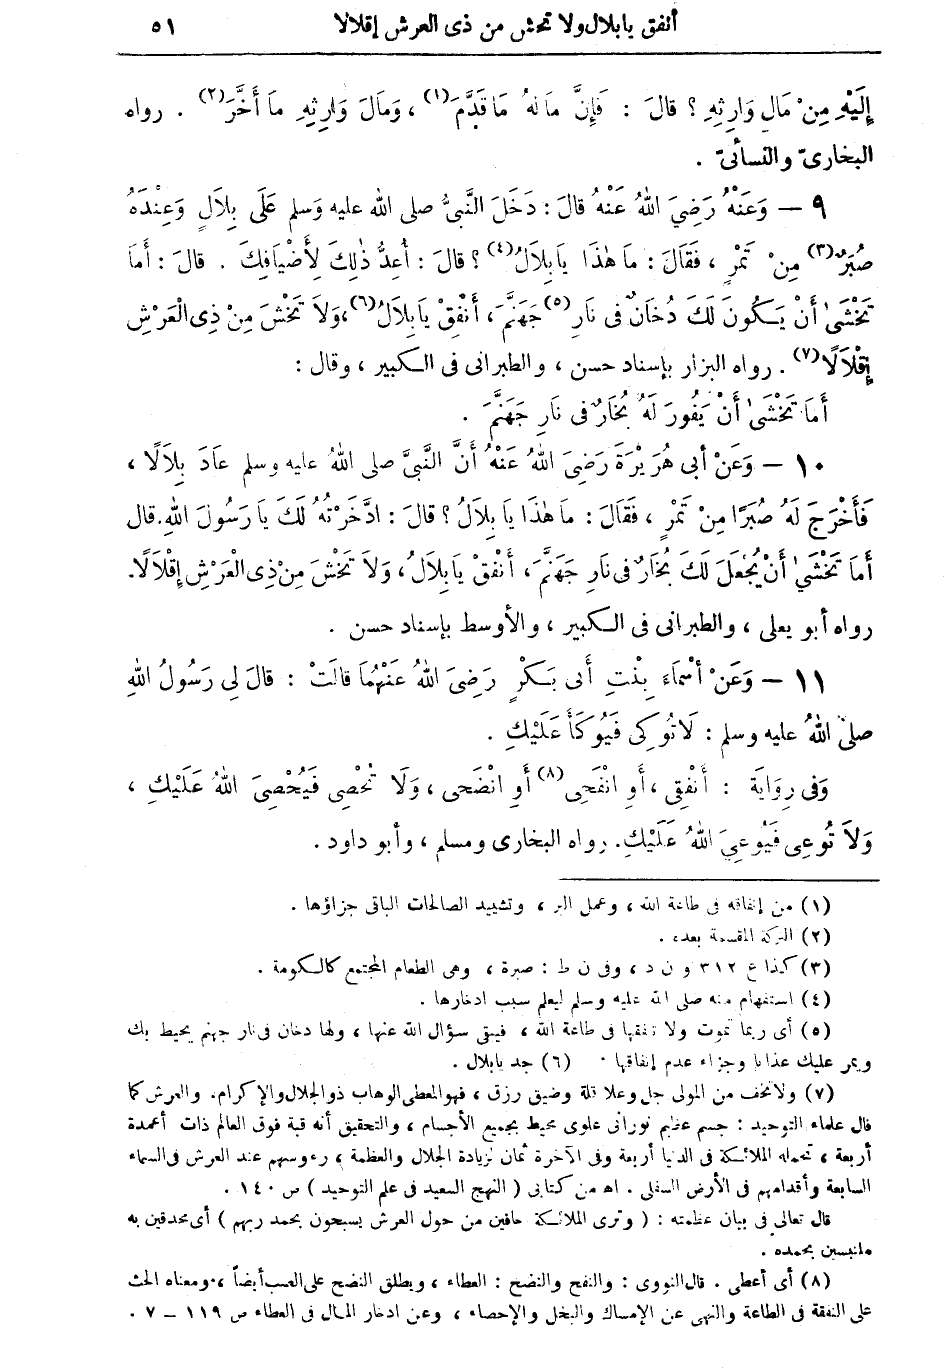 أنفق يا بلال ولا تخش من ذى العرش إقلالا ٥١
إِلَيْهِ مِنْ مَالِ وَارِثِهِ ؟ قالَ : فَإِنَّ مالَهُ مَا قَدَّمَ(١) ، وَمَالَ وَارِثِهِ ما أَخَّرَ(٢) . رواه
البخارىّ والنسائىّ .
٩ – وَعَنْهُ رَضِيَ اللهُ عَنْهُ قالَ : دَخَلَ النَّبىُّ صلى اللهُ عليه وَسلم عَلَى بِلاَلٍ وَعِنْدَهُ
صُبَرٌ(٣) مِنْ تَمْرٍ ، فَقَالَ : ما هٰذَا يا بِلاَلُ(٤) ؟ قالَ : أُعِدُّ ذٰلِكَ لِأَضْيَافِكَ . قالَ : أَما
تَخْشٰى أَنْ يَكُونَ لَكَ دُخَانٌ فى نَارِ(٥) جَهَنَّمَ ، أَنْفِقْ يَا بِلاَلُ(٦)، وَلاَ تَخْشَ مِنْ ذِى الْعَرْشِ
إِقْلاَلًا(٧) . رواه البزار بإسناد حسن ، والطبرانى فى الكبير ، وقال :
أَمَا تَخْشٰى أَنْ يَفُورَ لَهُ بُخَارٌ فى نَارِ جَهَنَّمَ .
١٠ – وَعَنْ أَبى هُرَيْرَةَ رَضِىَ اللهُ عَنْهُ أَنَّ النَّبىَّ صلى اللهُ عليه وسلم عادَ بِلاَلًا ،
فَأَخْرَجَ لَهُ صُبَرًا مِنْ تَمْرٍ ، فَقَالَ : ما هٰذَا يا بِلاَلُ ؟ قالَ : ادَّخَرْتُهُ لَكَ يا رَسُولَ اللهِ. قال
أَمَا تَخْشٰي أَنْ يُجْعَلَ لَكَ بُخَارٌ فى نَارِ جَهَنَّمَ ، أَنْفِقْ يا بِلاَلُ ، وَلاَ تَخْشَ مِنْ ذِى الْعَرْشِ إِقْلاَلًا.
رواه أبو يعلى ، والطبرانى فى الكبير ، والأوسط بإسناد حسن .
١١ – وَعَنْ أَسْماءَ بِنْتِ أَبى بَكْرٍ رَضِىَ اللهُ عَنْهُمَا قالَتْ : قالَ لِى رَسُولُ اللهِ
صلى اللهُ عليه وسلم : لَا تُوكِى فَيُوكَأَ عَلَيْكِ .
وَفى رِوَايَةٍ : أَنْفِقِى ، أَوِ انْفَحِى(٨) أَوِ انْضَحى ، وَلَا تُحْصِى فَيُحْصِىَ اللهُ عَلَيْكِ ،
وَلاَ تُوعِى فَيُوعِيَ اللهُ عَلَيْكِ. رواه البخارى ومسلم ، وأبو داود .
(١) من إنفاقه فى طاعة الله ، وعمل البر ، وتشييد الصالحات الباقى جزاؤها .
(٢) التركة المقسمة بعده .
(٣) كذا ع ٣١٢ و ن د ، وفى ن ط : صبرة ، وهى الطعام المجتمع كالكومة .
(٤) استفهام منه صلى الله عليه وسلم ليعلم سبب ادخارها .
(٥) أى ربما تموت ولا تنفقها فى طاعة الله ، فيبقى سؤال الله عنها ، ولها دخان فى نار جهنم يحيط بك
ويمر عليك عذابا وجزاء عدم إنفاقها . (٦) جد يا بلال .
(٧) ولا تخف من المولى جل وعلا قلة وضيق رزق ، فهو المعطى الوهاب ذو الجلال والإكرام. والعرش كما
قال علماء التوحيد : جسم عظيم نورانى علوى محيط بجميع الأجسام ، والتحقيق أنه قبة فوق العالم ذات أعمدة
أربعة ، تحمله الملائكة فى الدنيا أربعة وفى الآخرة ثمان لزيادة الجلال والعظمة ، رءوسهم عند العرش فى السماء
السابعة وأقدامهم فى الأرض السفلى . اهـ من كتابى ( النهج السعيد فى علم التوحيد ) ص ١٤٠ .
قال تعالى فى بيان عظمته : ( وترى الملائكة حافين من حول العرش يسبحون بحمد ربهم ) أى محدقين به
ملتبسين بحمده .
(٨) أى أعطى . قال النووى : والنفح والنضح : العطاء ، ويطلق النضح على الصب أيضاً ، ومعناه الحث
على النفقة فى الطاعة والنهى عن الإمساك والبخل والإحصاء ، وعن ادخار المال فى العطاء ص ١١٩ – ٧ .